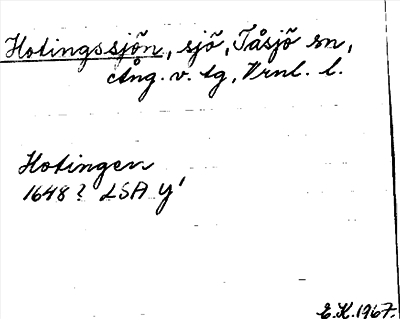 Hotingssjön, sjö, Tåsjö sn,
Ång. v. tg, Vrnl. l.
Hotingen
1648? LSA Y'
E.K. 1967.